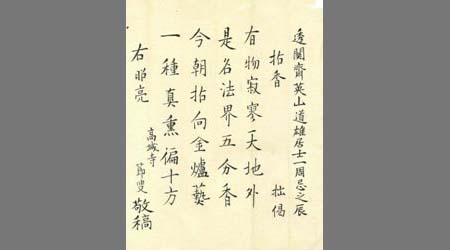 透關齋英山道雄居士一周忌之辰
拈香 拙偈
有物寂寥天地外
是名法界五分香
今朝拈向金爐爇
一種真熏偏十方
右昭亮
高城寺 節叟 敬稿